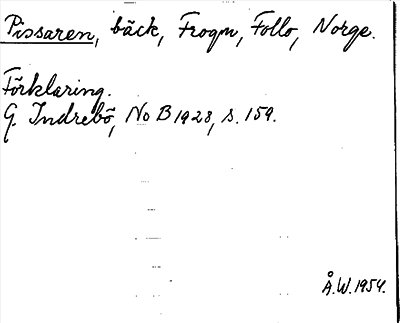 Pissaren, bäck, Frogn, Follo, Norge.
Förklaring.
G. Indrebö, No B 1928, s. 159.
Å.W. 1954.